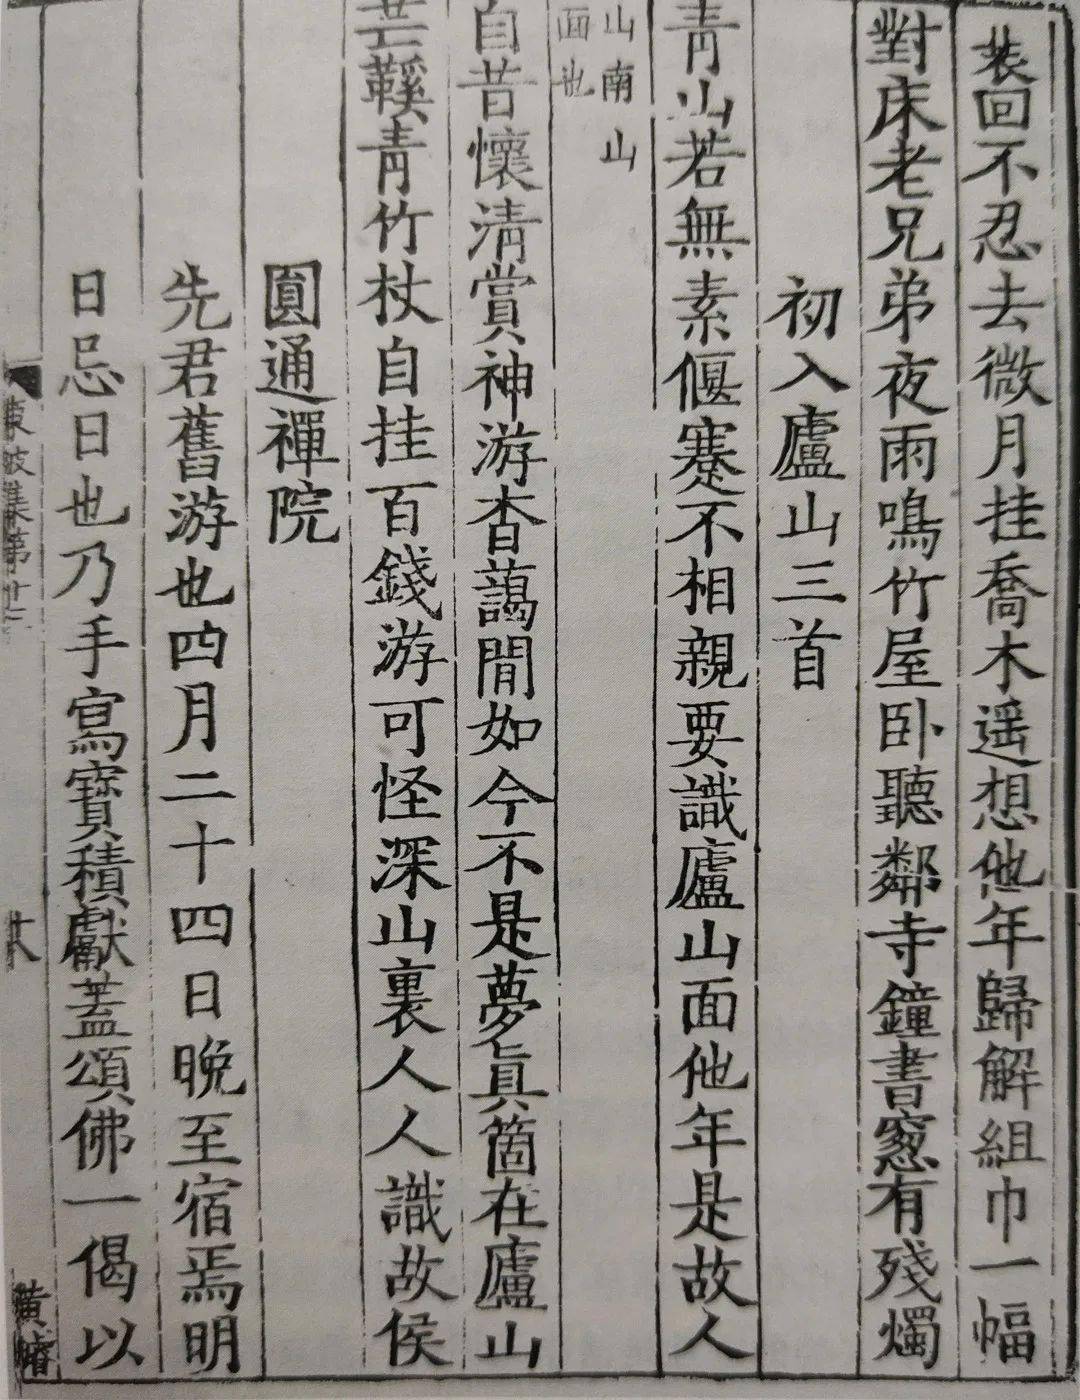 裴回不忍去微月挂喬木遥想他年歸解組巾一幅
對床老兄弟夜雨鳴竹屋卧聽鄰寺鐘書窻有殘燭
初入廬山三首
青山若無素偃蹇不相親要識廬山面他年是故人
山南山
面也
自昔懷清賞神游杳藹間如今不是夢真箇在廬山
芒鞵青竹杖自挂百錢游可怪深山裏人人識故侯
圓通禪院
先君舊游也四月二十四日晚至宿焉明
日忌日也乃手寫寶積獻蓋頌佛一偈以
東坡集第廿二
黄